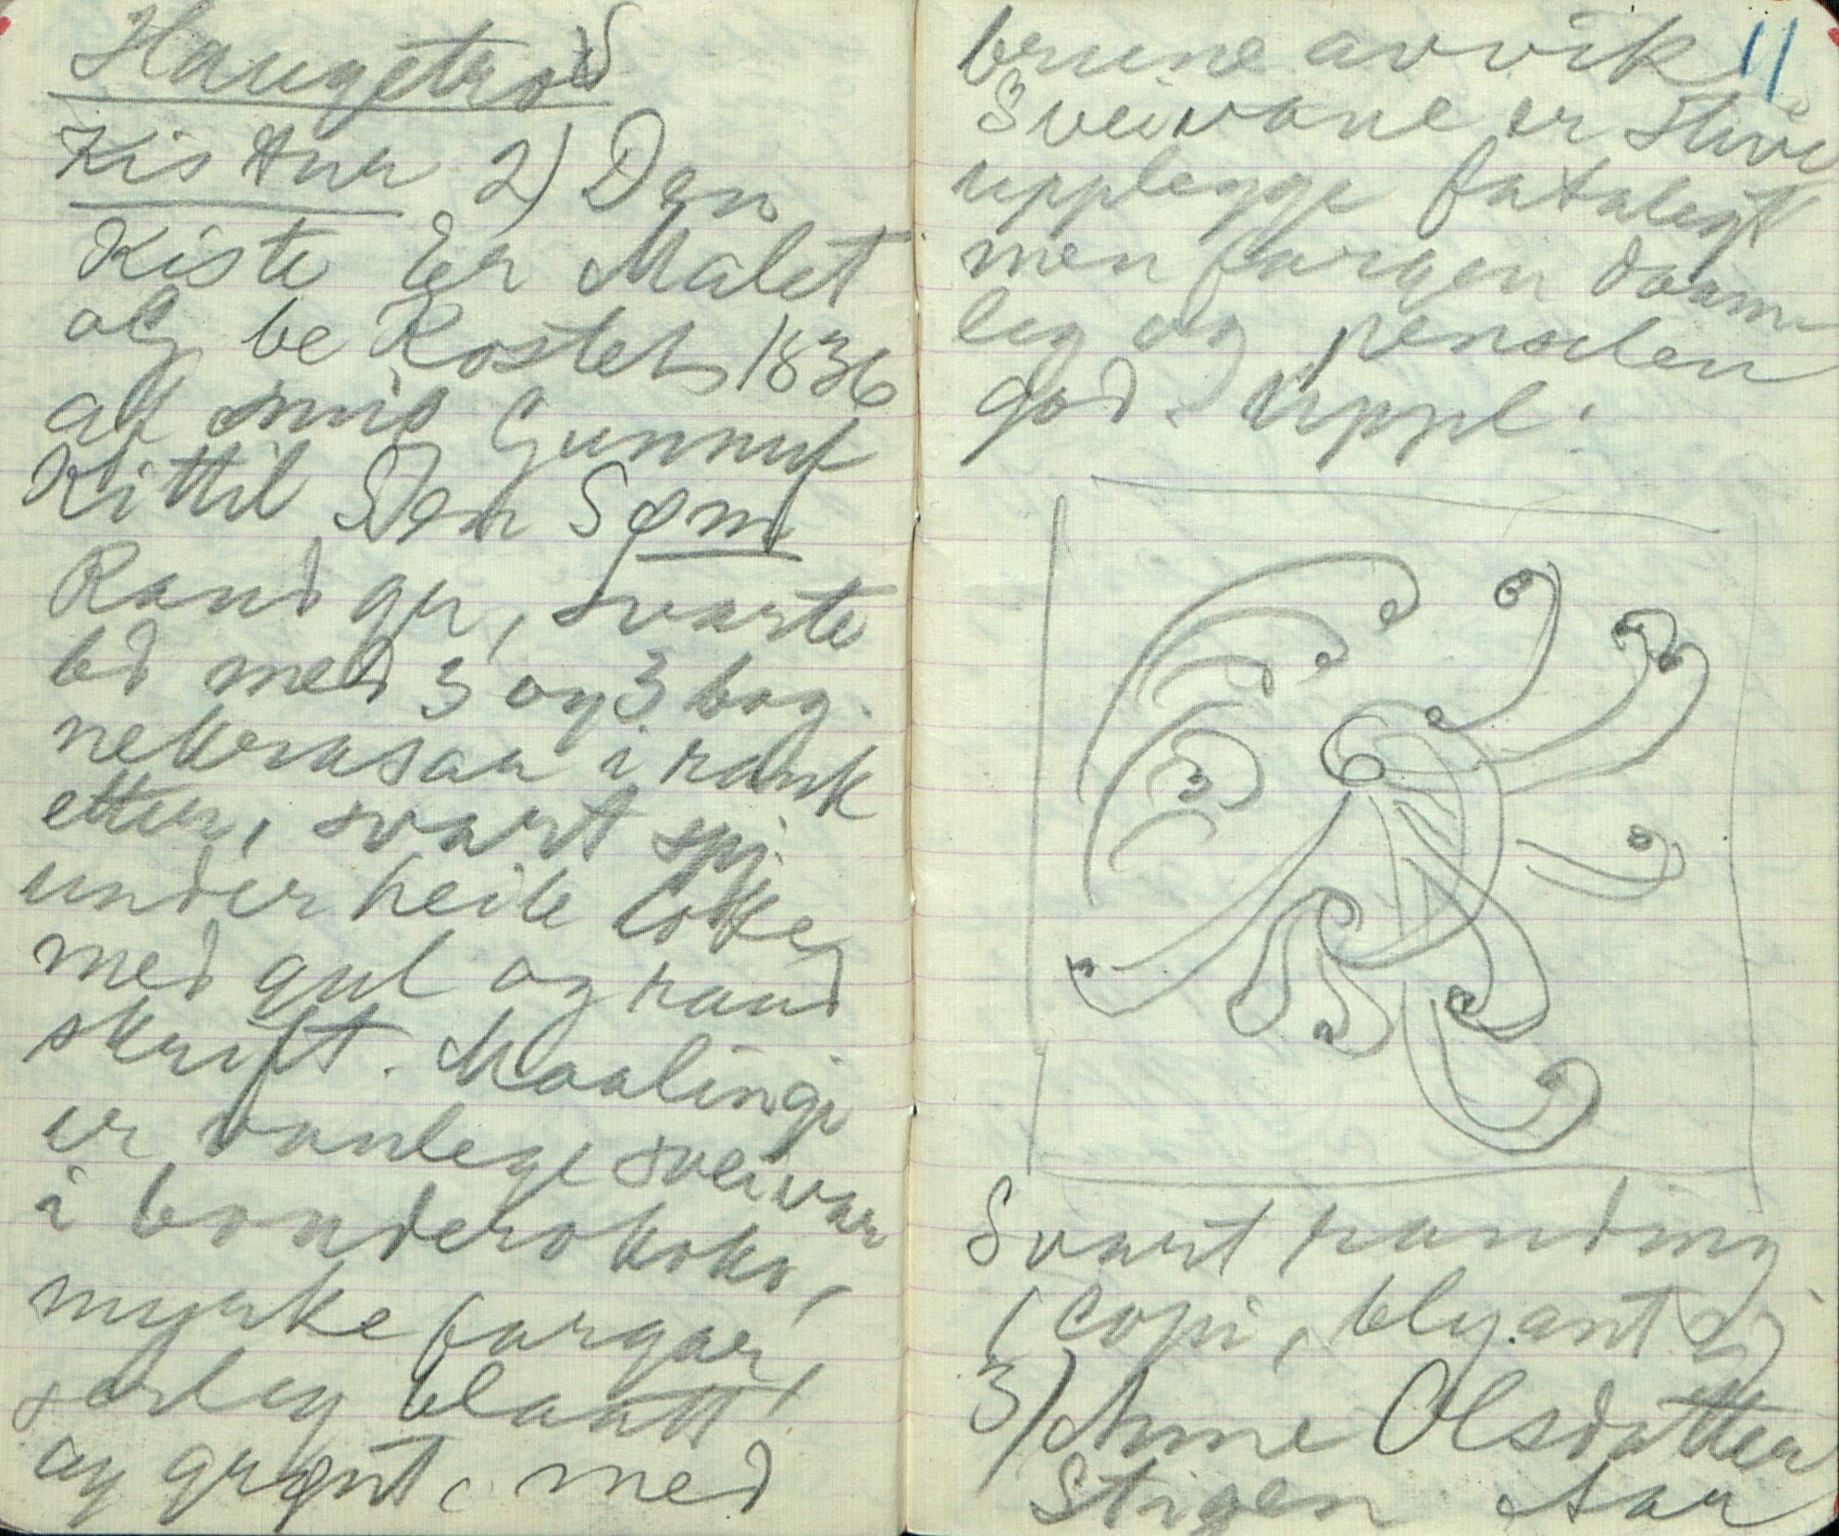 Haugetrod
Kistur 2) Den
Kiste Er Malet
og be Kostet 1836
af mig Gunnul
Kittil Sen Søm
Raud gr, svarte
bd med 3 og 3 bog.
nekrusar i rank
etter, svart spj.
under heile lokket
med gul og raud
skrift. Maalingi
er vanlege sveivar
i bonderokoko,
myrke fargar,
særleg blaatt
og grønt, med
brune avvik 11
Sveivane er stive
upplegge fatalegt
men fargen daam
leg og penselen
god. Uppl.
Svart randing
(copi, blyant
3) Anne Olsdatter
Stigen Aar